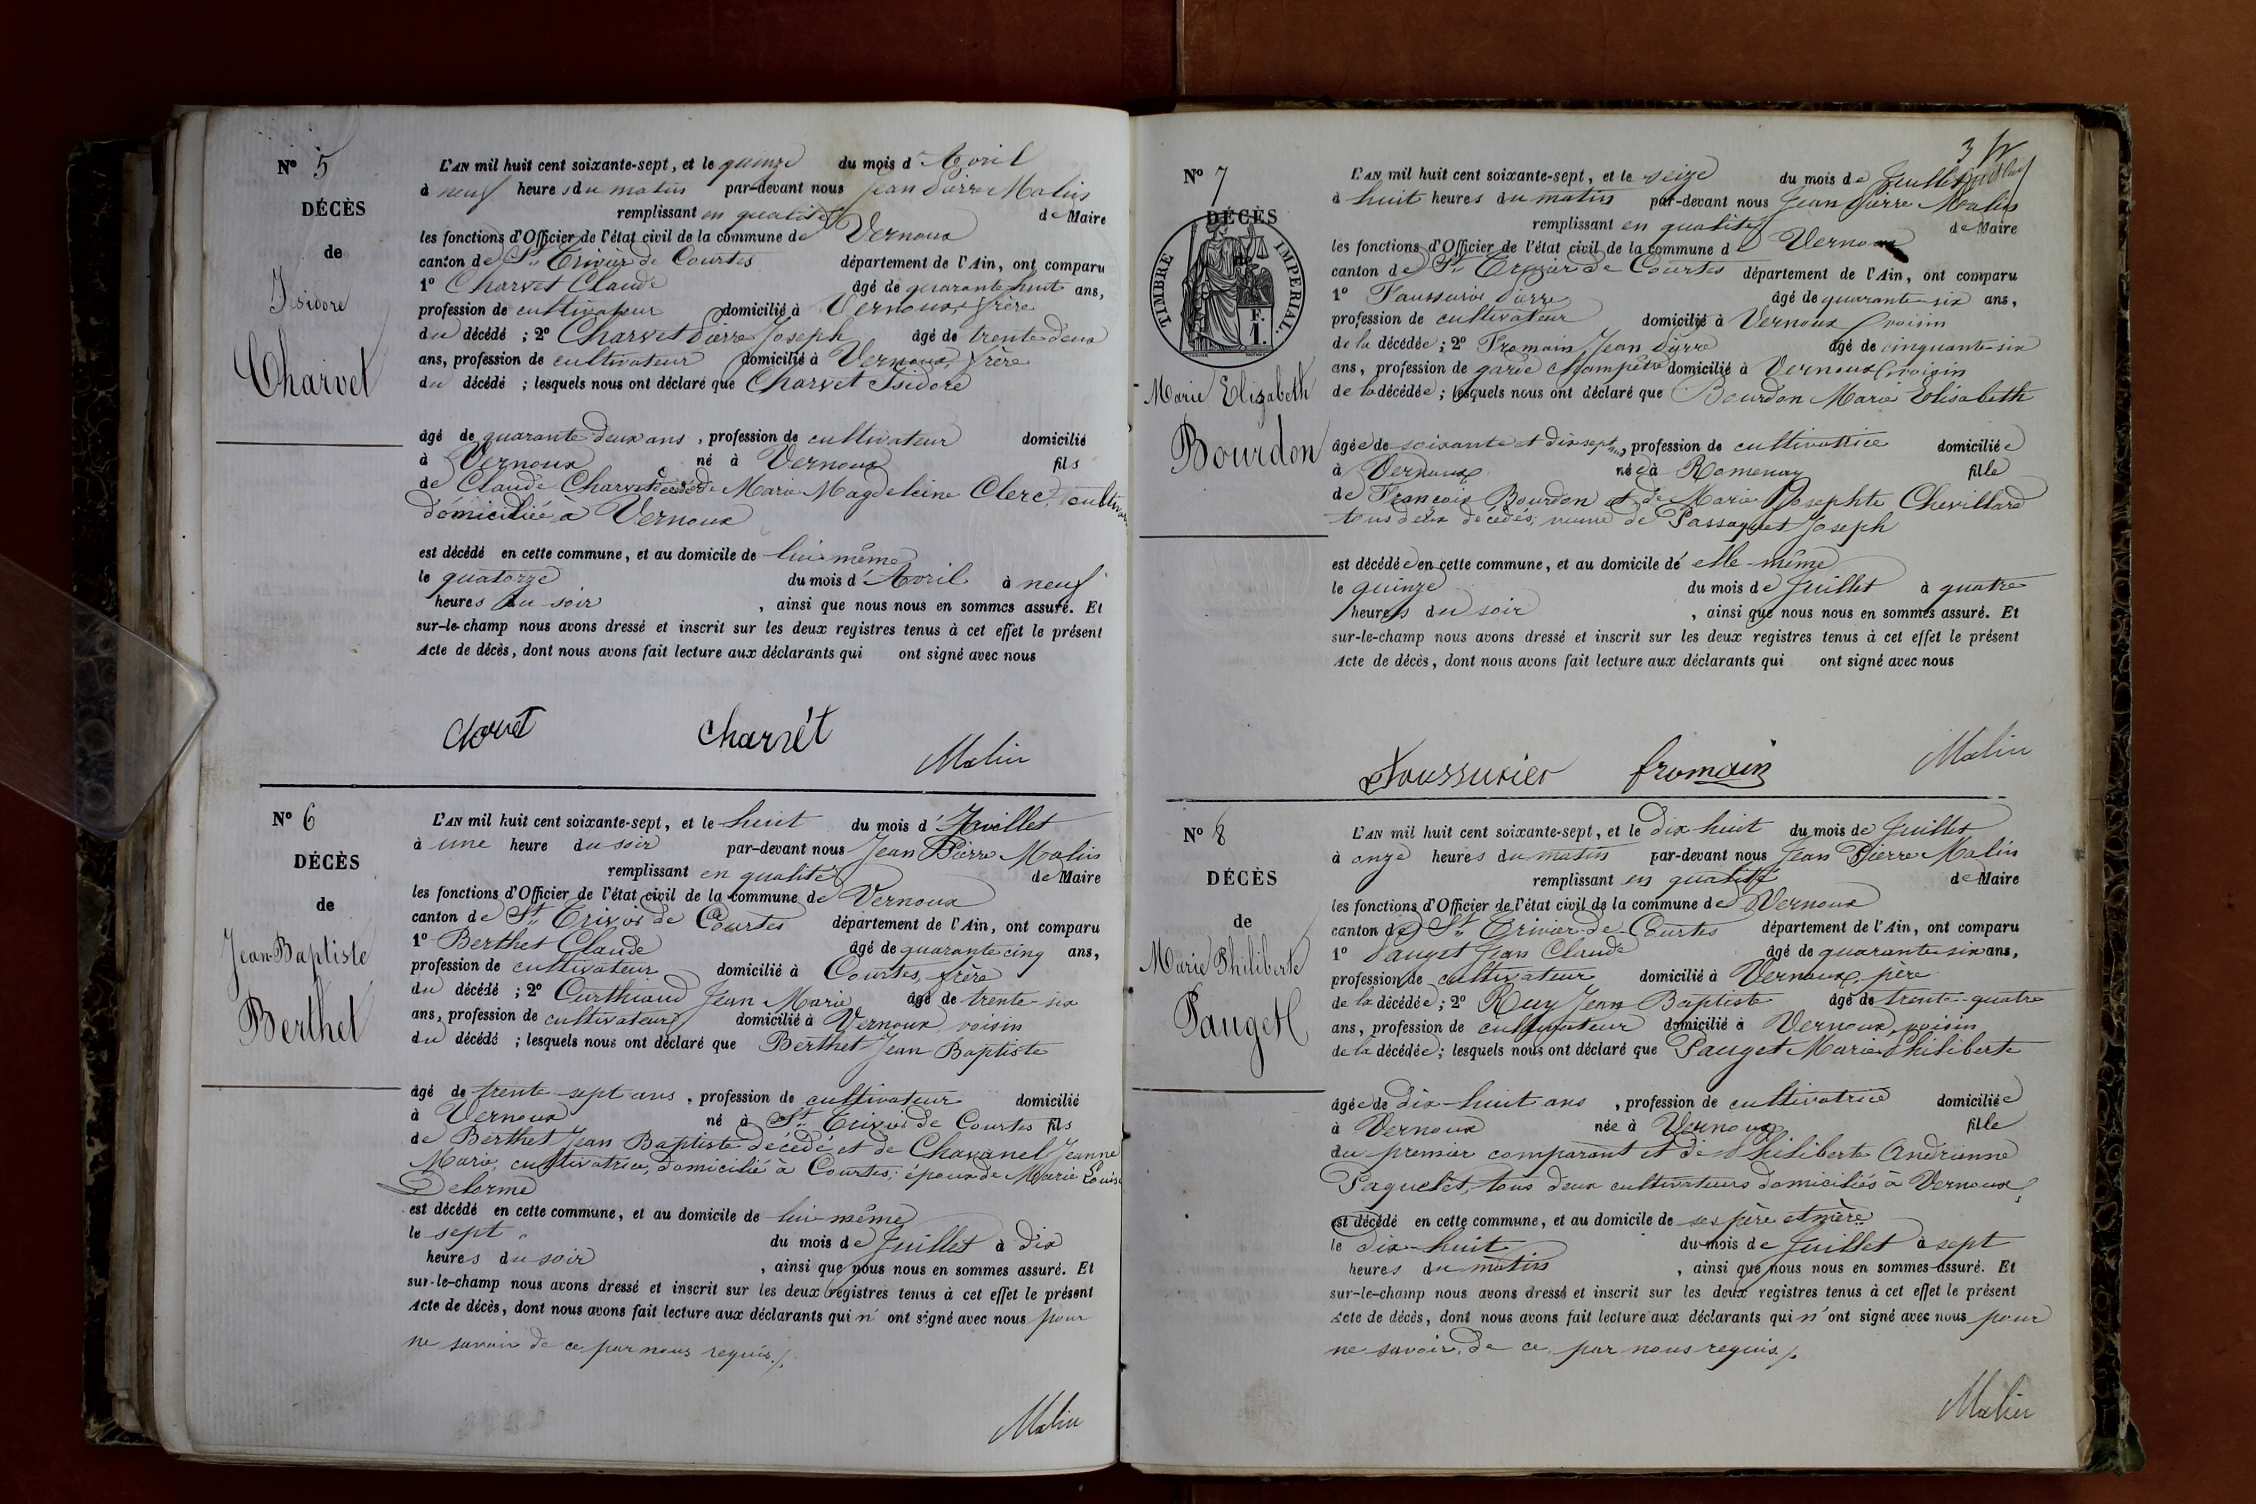 Nº 5
DÉCÈS
de
Isidore
Charvet
L'AN mil huit cent soixante-sept, et le quinze du mois d'Avril
à neuf heures du matin par-devant nous Jean Pierre Malin
remplissant en qualité de Maire
les fonctions d'Officier de l'état civil de la commune de Vernoux
canton de St Trivier de Courtes département de l'Ain, ont comparu
1º Charvet Claude âgé de quarante huit ans,
profession de cultivateur domicilié à Vernoux, frère
du décédé ; 2º Charvet Pierre Joseph âgé de trente deux
ans, profession de cultivateur domicilié à Vernoux, frère
du décédé ; lesquels nous ont déclaré que Charvet Isidore
âgé de quarante deux ans, profession de cultivateur domicilié
à Vernoux né à Vernoux fils
de Claude Charvet décédé de Marie Magdeleine Clerc,
domiciliée à Vernoux
est décédé en cette commune, et au domicile de lui même
le quatorze du mois d'Avril à neuf
heures du soir, ainsi que nous nous en sommes assuré. Et
sur-le-champ nous avons dressé et inscrit sur les deux registres tenus à cet effet le présent
Acte de décès, dont nous avons fait lecture aux déclarants qui ont signé avec nous
Charvet
Malin
Nº 6
DÉCÈS
de
Jean-Baptiste
Berthet
L'AN mil huit cent soixante-sept, et le huit du mois d'Juillet
à une heure du soir par-devant nous Jean Pierre Malin
remplissant en qualité de Maire
les fonctions d'Officier de l'état civil de la commune de Vernoux
canton de St Trivier de Courtes département de l'Ain, ont comparu
1º Berthet Claude âgé de quarante cinq ans,
profession de cultivateur domicilié à Courtes, frère
du décédé ; 2º Curthiaud Jean Marie âgé de trente-six
ans, profession de cultivateur domicilié à Vernoux voisin
du décédé ; lesquels nous ont déclaré que Berthet Jean Baptiste
âgé de trente-sept ans, profession de cultivateur domicilié
à Vernoux né à St Trivier de Courtes fils
de Berthet Jean Baptiste décédé et de Chavanel Jeanne
Marie, cultivatrice, domicilié à Courtes; époux de Marie Louise
Delorme
est décédé en cette commune, et au domicile de lui-même
le sept du mois de Juillet à dix
heures du soir, ainsi que nous nous en sommes assuré. Et
sur-le-champ nous avons dressé et inscrit sur les deux registres tenus à cet effet le présent
Acte de décès, dont nous avons fait lecture aux déclarants qui n'ont signé avec nous pour
ne savoir de ce par nous requis.
Malin
Nº 7
DÉCÈS
de
TIMBRE IMPERIAL
F.
1.
Marie Elizabeth
Bourdon
L'AN mil huit cent soixante-sept, et le seize du mois de Juillet
à huit heures du matin par-devant nous Jean Pierre Malin
remplissant en qualité de Maire
les fonctions d'Officier de l'état civil de la commune de Vernoux
canton de St Trivier de Courtes département de l'Ain, ont comparu
1º Faussurier Pierre âgé de quarante-six ans,
profession de cultivateur domicilié à Vernoux, voisin
de la décédée ; 2º Fromain Jean Pierre âgé de cinquante-six
ans, profession de garde champêtre domicilié à Vernoux, voisin
de la décédée ; lesquels nous ont déclaré que Bourdon Marie Elisabeth
âgée de soixante et dix sept ans, profession de cultivatrice domiciliée
à Vernoux née à Romenay fille
de François Bourdon et de Marie Josephte Chevillard
tous deux décédés; veuve de Passaquet Joseph
est décédée en cette commune, et au domicile de elle-même
le quinze du mois de Juillet à quatre
heures du soir, ainsi que nous nous en sommes assuré. Et
sur-le-champ nous avons dressé et inscrit sur les deux registres tenus à cet effet le présent
Acte de décès, dont nous avons fait lecture aux déclarants qui ont signé avec nous
fromain
Malin
Nº 8
DÉCÈS
de
Marie Philiberte
Pauget
L'AN mil huit cent soixante-sept, et le dix huit du mois de Juillet
à onze heures du matin par-devant nous Jean Pierre Malin
remplissant en qualité de Maire
les fonctions d'Officier de l'état civil de la commune de Vernoux
canton de St Trivier de Courtes département de l'Ain, ont comparu
1º Pauget Jean Claude âgé de quarante-six ans,
profession de cultivateur domicilié à Vernoux, père
de la décédée ; 2º Ruy Jean Baptiste âgé de trente-quatre
ans, profession de cultivateur domicilié à Vernoux, voisin
de la décédée ; lesquels nous ont déclaré que Pauget Marie Philiberte
âgée de dix-huit ans, profession de cultivatrice domiciliée
à Vernoux née à Vernoux fille
du premier comparant et de Philiberte Andrienne
Paquelet, tous deux cultivateurs domiciliés à Vernoux,
est décédé en cette commune, et au domicile de ses père et mère
le dix-huit du mois de Juillet à sept
heures du matin, ainsi que nous nous en sommes assuré. Et
sur-le-champ nous avons dressé et inscrit sur les deux registres tenus à cet effet le présent
Acte de décès, dont nous avons fait lecture aux déclarants qui n'ont signé avec nous pour
ne savoir, de ce par nous requis.
Malin